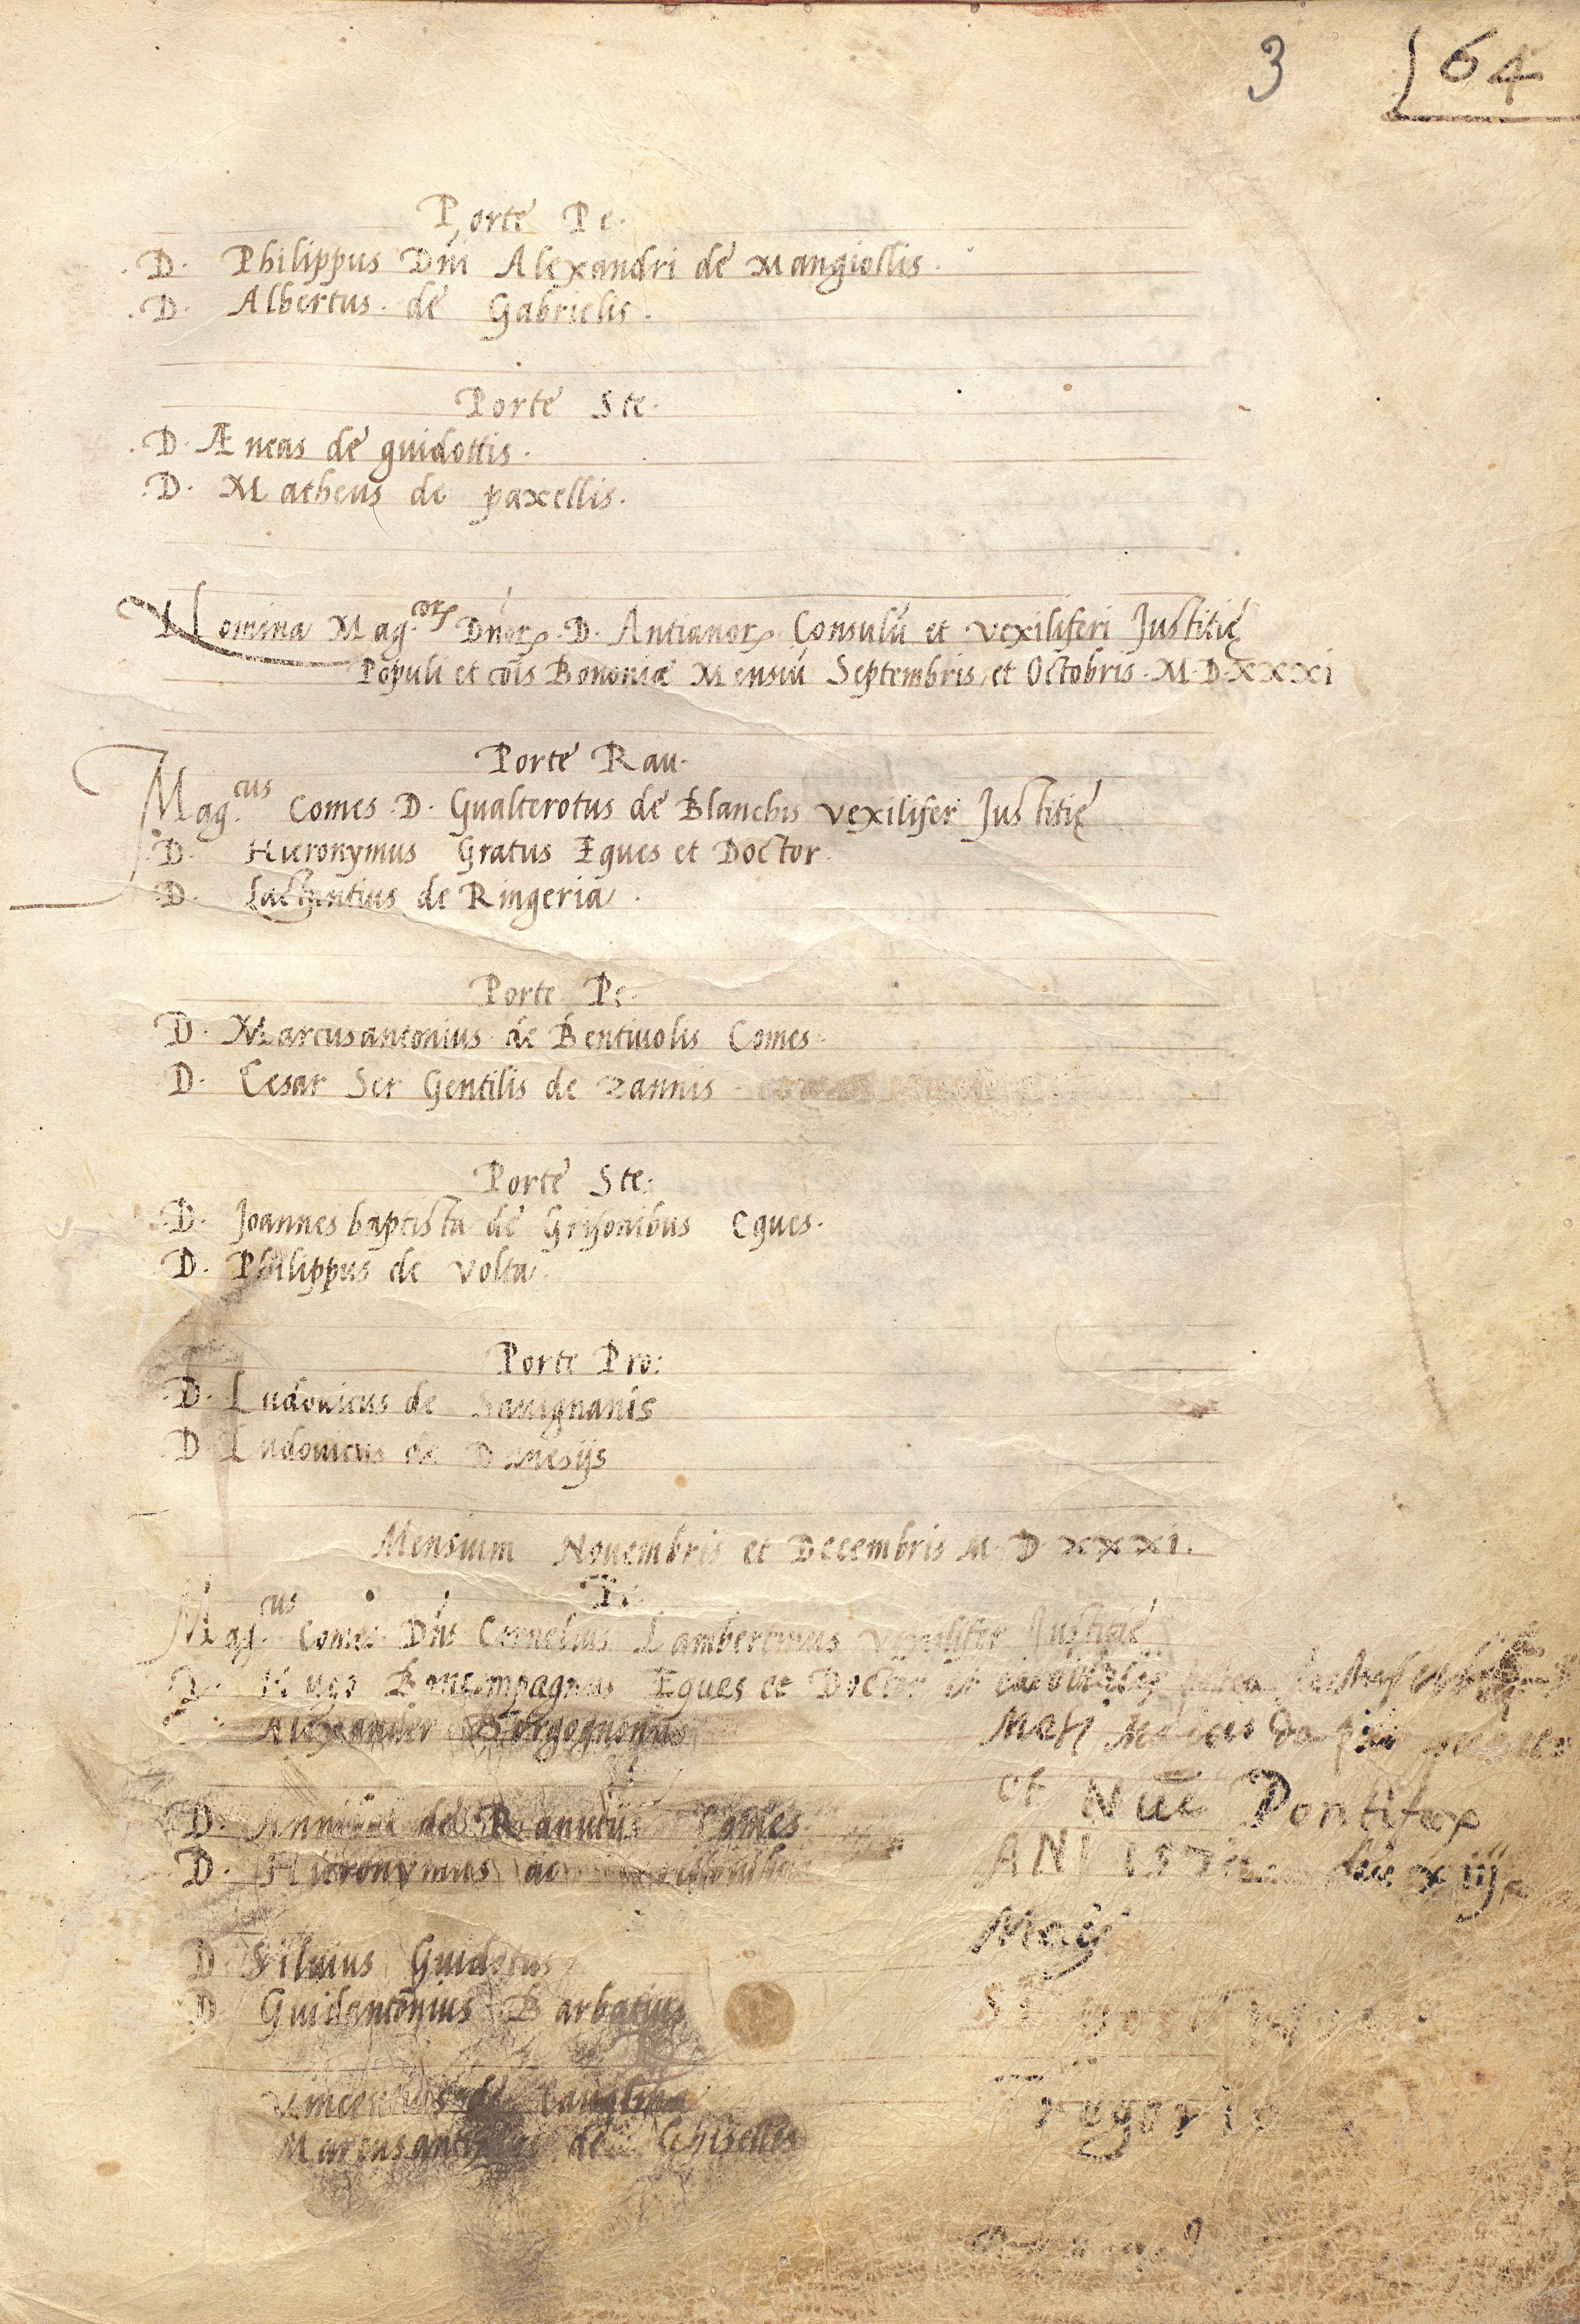 3 64
Porte Pe.
D. Philippus Dni Alexandri de Mangiollis.
D. Albertus. de Gabrielis.
Porte Ste.
D. Æneas de guidottis.
D. Matheus de paxellis.
Nomina Mag.corꝝ Dnorꝝ. D. Antianorꝝ Consulū et vexiliferi Justitię
Populi et cōis Bononiæ Mensiū Septembris et Octobris. M.D.XXXI
Porte Rau.
Mag.cus Comes. D. Gualterotus de Blanchis vexilifer Justitię
D. Hieronymus Gratus Eques et Doctor.
D. Lactantius de Ringeria.
Porte Pe.
D. Marcusantonius de Bentiuolis Comes.
D. Cesar Ser Gentilis de zannis
Porte Ste:
D. Joannes baptista de Grisonibus Eques.
D. Philippus de Volta.
Porte Pro:
D. Ludouicus de Sauignanis
D Ludouicus de Danesijs
Mensium Nouembris et Decembris M. D XXXI.
Mag.cus Comes Dns Cornelius Lambertinus vexilifer Justitię
D. Hugo Boncompagnus Eques et Doctor et
Alexander Borgognonus
et Nūc Pontifex
D. Annibal de Ranutijs Comes
D. Hieronymus de
ANI die xiij
Maij
D Siluius Guidotus
D. Guidantonius Barbatius
Vincentius de
Marcusantonius de Ghisellis